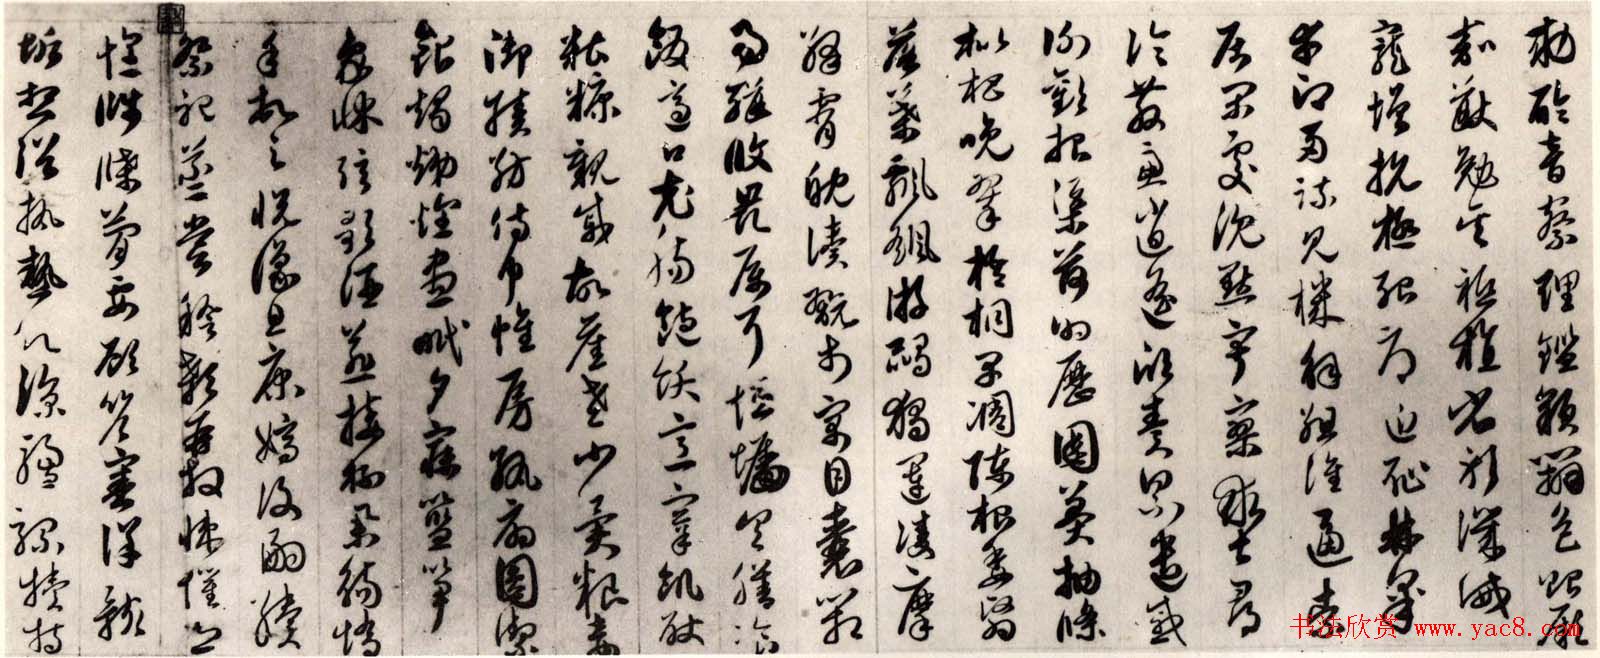 勑聆音察理鑑貌辨色貽厥
嘉猷勉其祗植省躬譏誡
寵增抗極殆辱近恥林皋
幸即兩疏見機解組誰逼索
居閑處沉默寂寥求古尋
論散慮逍遙欣奏累遣慼
謝歡招渠荷的歷園莽抽條
枇杷晚翠梧桐早凋陳根委翳
落葉飄颻游鵾獨運凌摩
絳霄耽讀翫市寓目囊箱
易輶攸畏屬耳垣墻具膳飡
飯適口充腸飽飫烹宰飢厭
糟糠親戚故舊老少異粮妾
御績紡侍巾帷房紈扇圓潔
銀燭煒煌晝眠夕寐藍笋
象床弦歌酒讌接杯舉觴矯
手頓足悅豫且康嫡後嗣續
祭祀蒸嘗稽顙再拜悚懼恐
惶牋牒簡要顧答審詳骸
垢想浴執熱願涼驢騾犢特
书法欣赏 www.yac8.com